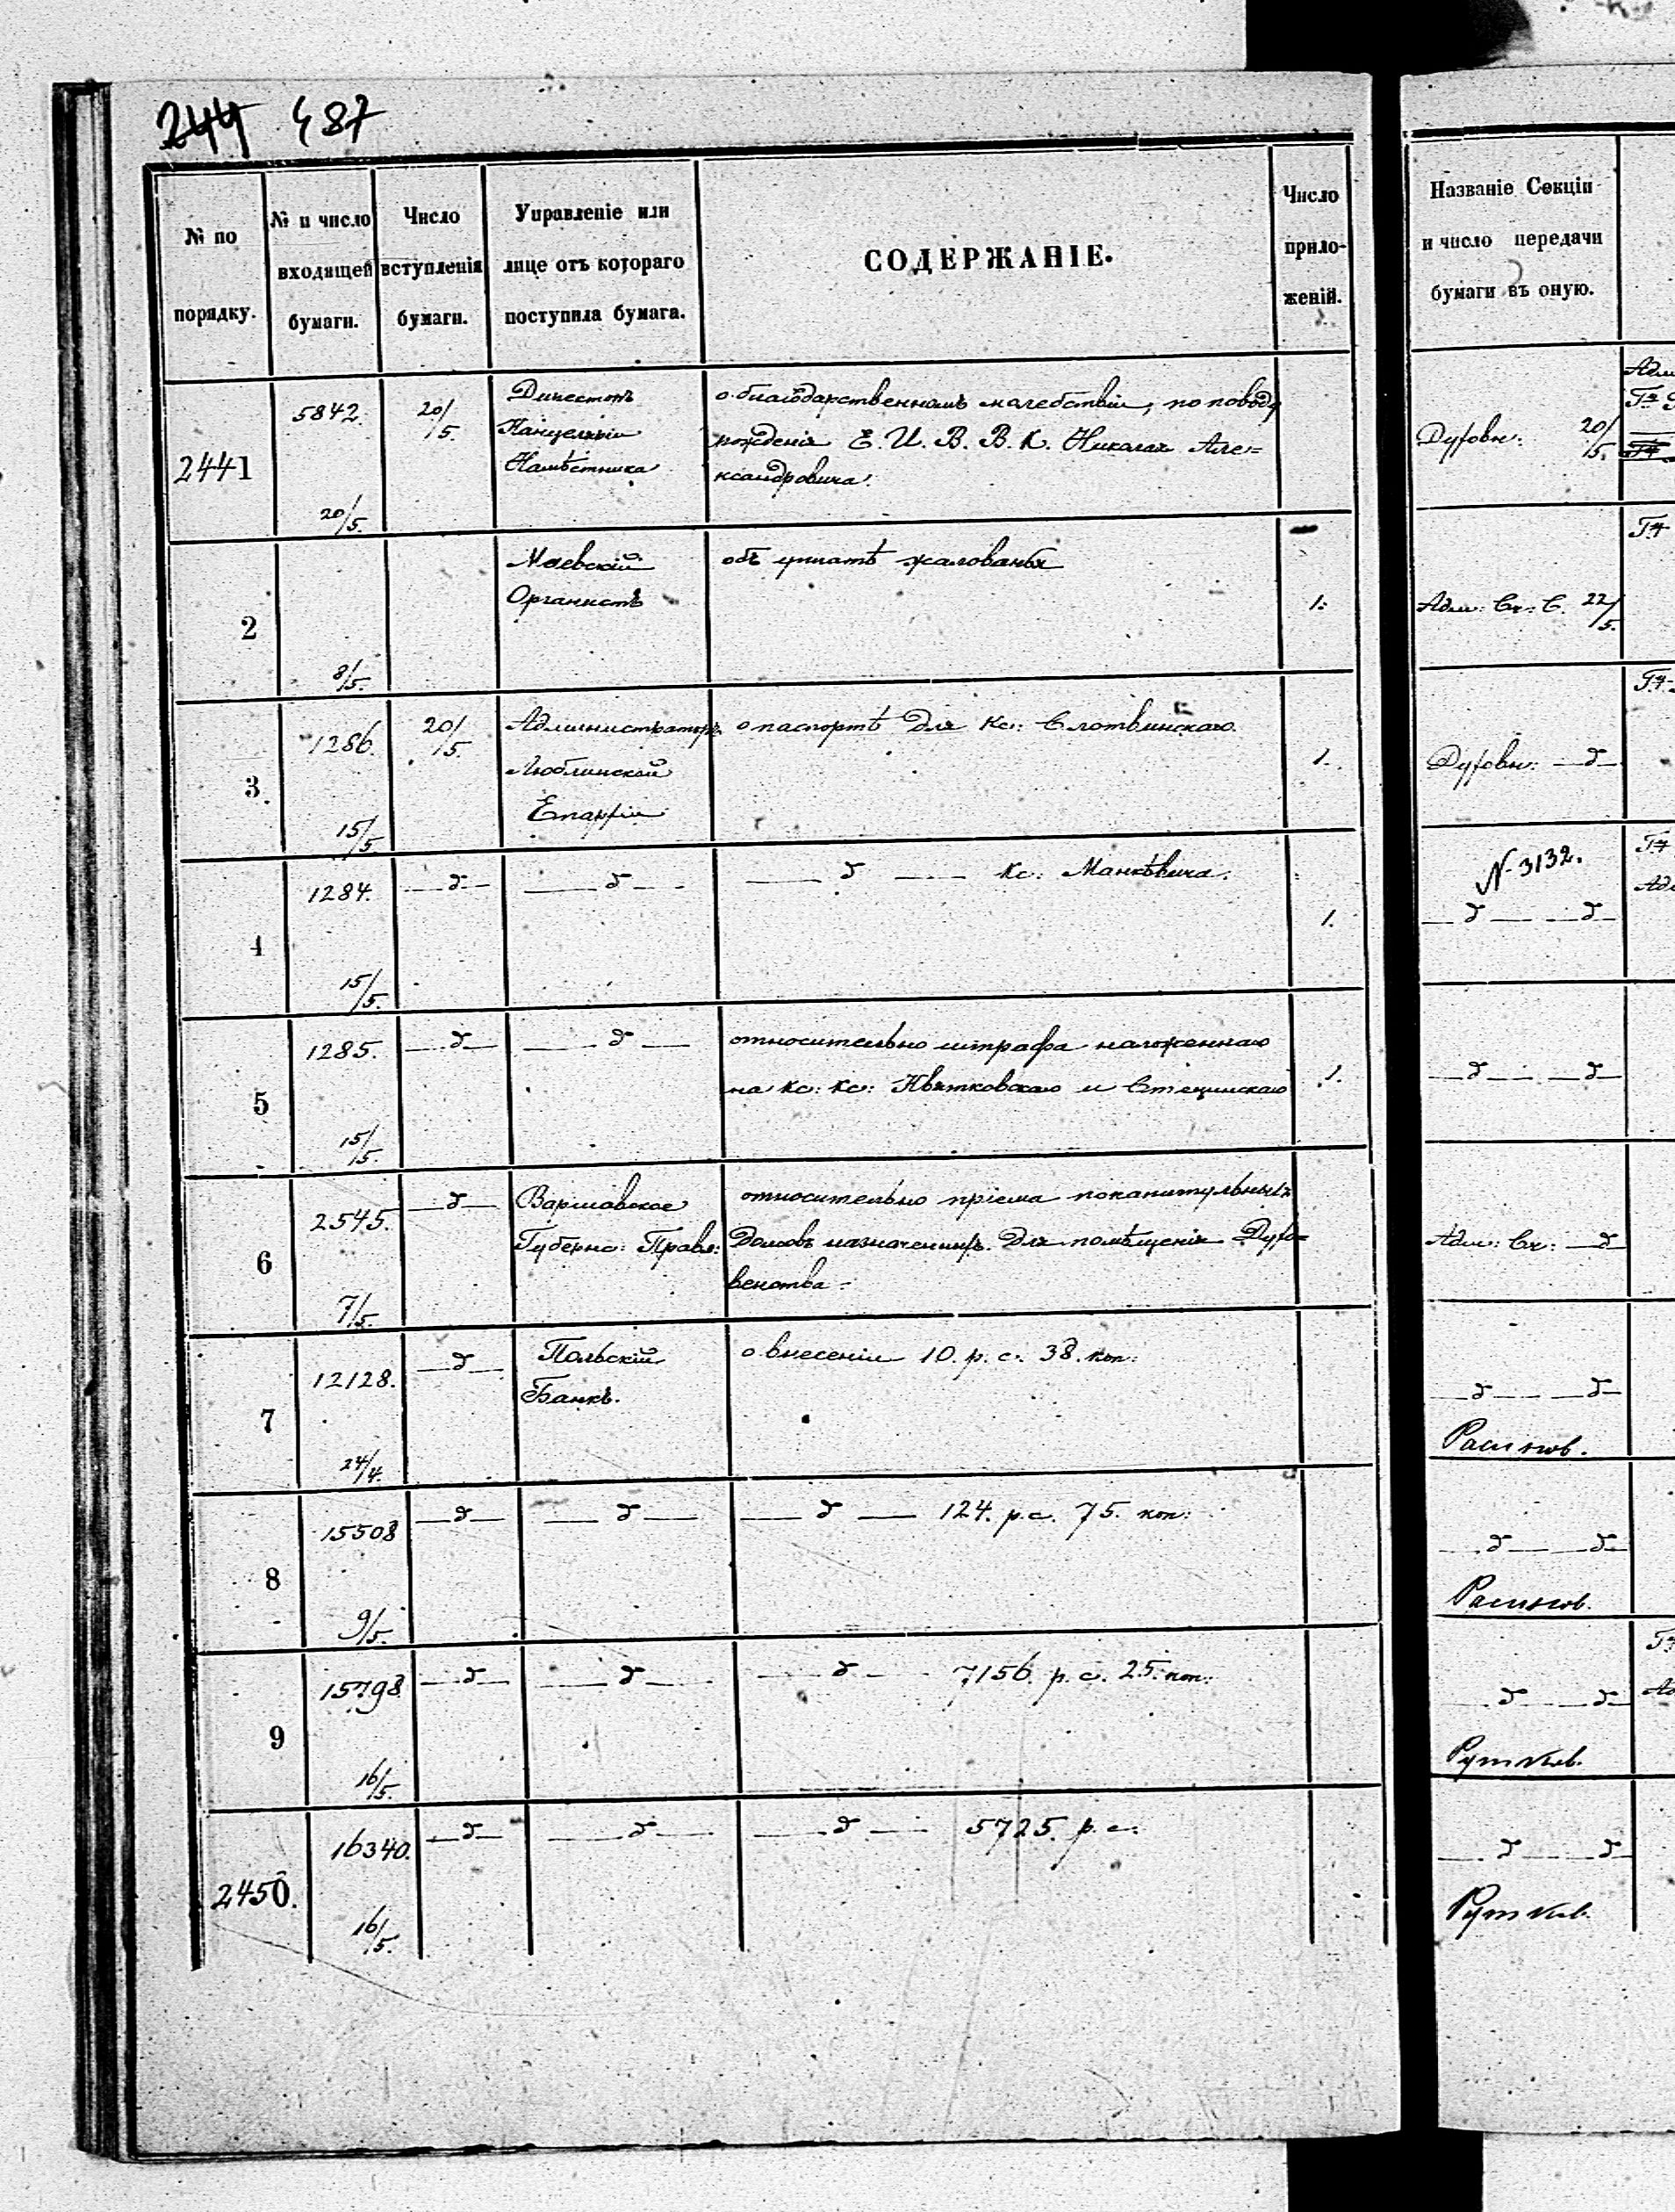 244 487
№ по порядку.
№ и число входящей бумаги.
Число вступленія бумаги.
Управленіе или лице отъ котораго поступила бумага.
СОДЕРЖАНІЕ.
Число приложеній.
Названіе Секціи и число передачи бумаги въ оную.
2441
5842.
20/5.
20/5.
Директоръ
Канцеляріи
Намѣстника
о благодарственномъ молебствіи, по поводу
рожденія Е. И. В. В. К. Николая Але=
ксандровича.
Духовн: 20/5.
2
8/5.
Маевскій
Органистъ
объ уплатѣ жалованья
1.
Адм: Ск: С. 22/5.
3.
1286.
15/5
20/5.
Администраторъ
Люблинской
Епархіи
о паспортѣ для Кс: Слотвинскаго.
1.
Духовн: —д—
4
1284.
15/5.
—д—
—д—
—д— Кс: Манкѣвича.
1.
N. 3132.
—д— —д—
5
1285.
15/5.
—д—
—д—
относительно штрафа наложеннаго
на Кс: Кс: Квятковскаго и Стецинскаго
1.
—д— —д—
6
2545.
7/5.
—д—
Варшавское
Губернс: Правл:
относительно пріема
домовъ назначенныхъ для помѣщенія Духо=
венства.
Адм: Ск: —д
7
12128.
24/4.
—д—
Польскій
Банкъ.
о внесеніи 10. р. с. 38. коп:
—д— —д—
8
15508
9/5.
—д—
—д—
—д— 124. р. с. 75. коп:
—д— —д—
9
15798
16/5.
—д—
—д—
—д— 7156. р. с. 25. коп:
—д— —д—
2450.
16340.
16/5.
—д—
—д—
—д— 5725. р. с.
—д— —д—